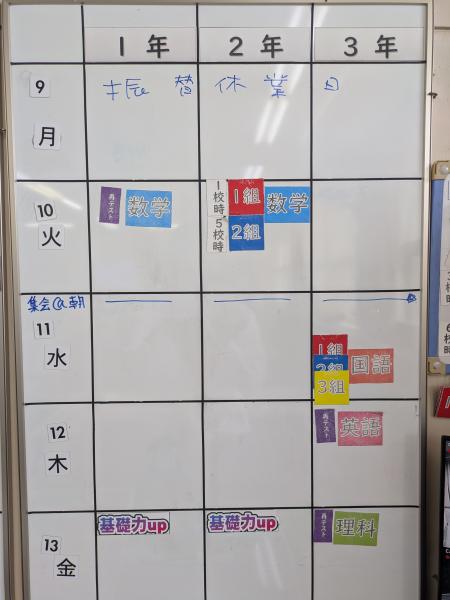 1年 2年 3年
9 振替休業日
月
10 再テスト 数学 1校時 1組 数学
火 5校時 2組
集会@朝
11 1組
水 2組 国語
3組
12 再テスト 英語
木
13 基礎力up 基礎力up 再テスト 理科
金